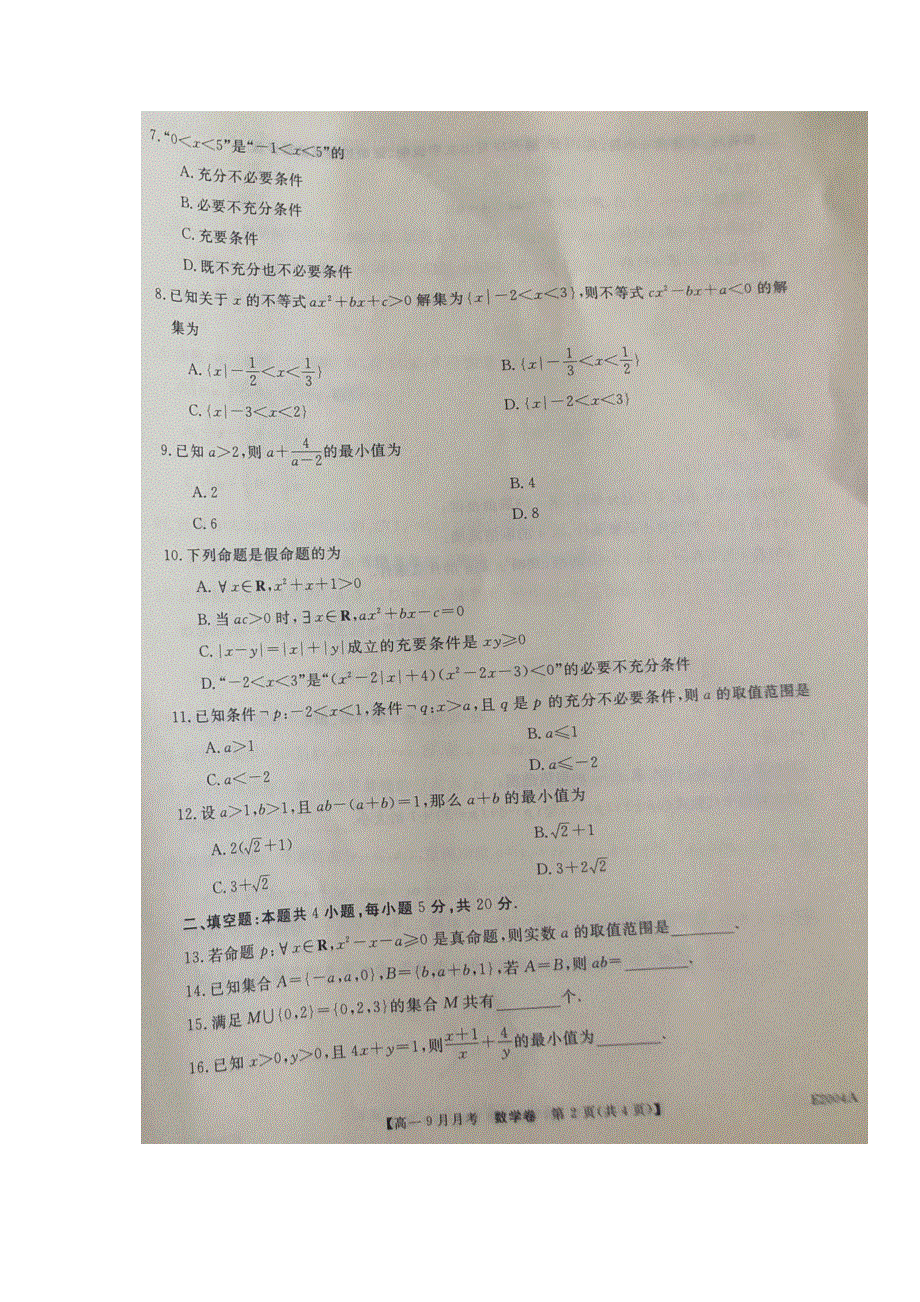 7.“0<x<5”是“-1<x<5”的
A.充分不必要条件
B.必要不充分条件
C.充要条件
D.既不充分也不必要条件
8.已知关于 x 的不等式 ax²+bx+c>0 解集为{x|-2<x<3},则不等式 cx²-bx+a<0 的解
集为
A.{x|-1/2<x<1/3} B.{x|-1/3<x<1/2}
C.{x|-3<x<2} D.{x|-2<x<3}
9.已知 a>2,则 a+4/(a-2)的最小值为
A.2 B.4
C.6 D.8
10.下列命题是假命题的为
A.∀x∈R,x²+x+1>0
B.当 ac>0 时,∃x∈R,ax²+bx-c=0
C.|x-y|=|x|+|y|成立的充要条件是 xy≥0
D.“-2<x<3”是“(x²-2|x|+4)(x²-2x-3)<0”的必要不充分条件
11.已知条件¬p:-2<x<1,条件¬q:x>a,且 q 是 p 的充分不必要条件,则 a 的取值范围是
A.a>1 B.a≤1
C.a<-2 D.a≤-2
12.设 a>1,b>1,且 ab-(a+b)=1,那么 a+b 的最小值为
A.2(√2+1) B.√2+1
C.3+√2 D.3+2√2
二、填空题:本题共 4 小题,每小题 5 分,共 20 分.
13.若命题 p:∀x∈R,x²-x-a≥0 是真命题,则实数 a 的取值范围是________.
14.已知集合 A={-a,a,0},B={b,a+b,1},若 A=B,则 ab=________.
15.满足 M∪{0,2}={0,2,3}的集合 M 共有________个.
16.已知 x>0,y>0,且 4x+y=1,则(x+1)/x+4/y的最小值为________.
【高一 9 月月考 数学卷 第 2 页(共 4 页)】 E2004A